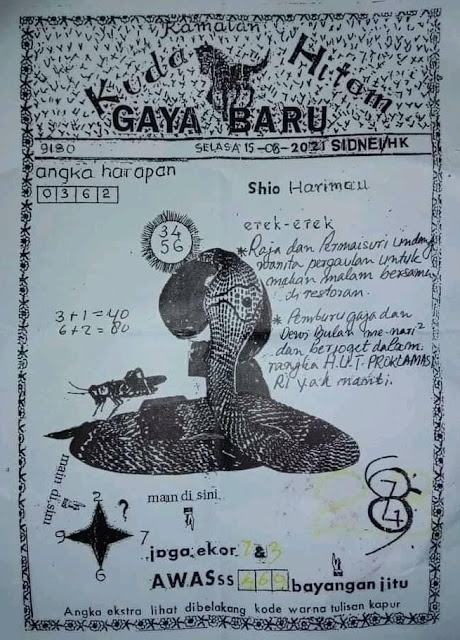 Ramalan
Kuda Hitam
GAYA BARU
9180 SELASA 15-06-2021 SIDNEI/HK
angka harapan
0 3 6 2
Shio Harimau
erek-erek
34
56
*Raja dan Permaisuri undang
wanita pergaulan untuk
makan malam bersama
di restoran.
3+1=40
6+2=80
* Pemburu gaja dan
Dewi Bulan me-nari²
dan berjoget dalam
rangka H.U.T PROKLAMASI
RI yak nanti.
main di sini
main di sini
2
?
9
7
6
7
4
jaga ekor 7 & 3
AWASss bayangan jitu
Angka ekstra lihat dibelakang kode warna tulisan kapur